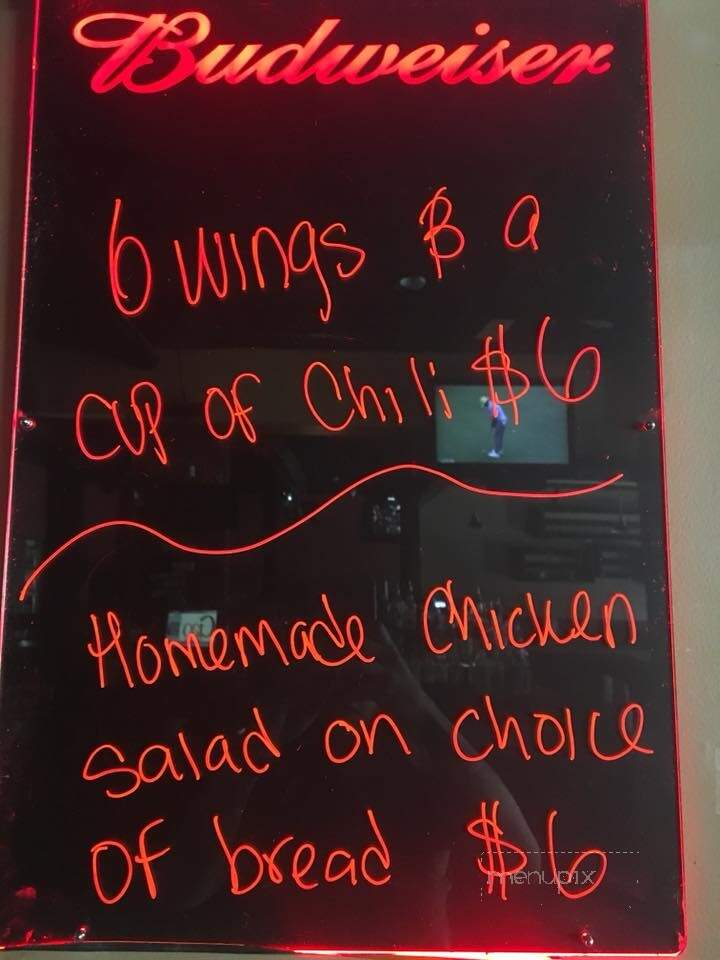 Budweiser
6 wings & a
cup of Chili $6
Homemade Chicken
salad on choice
of bread $6
menupix